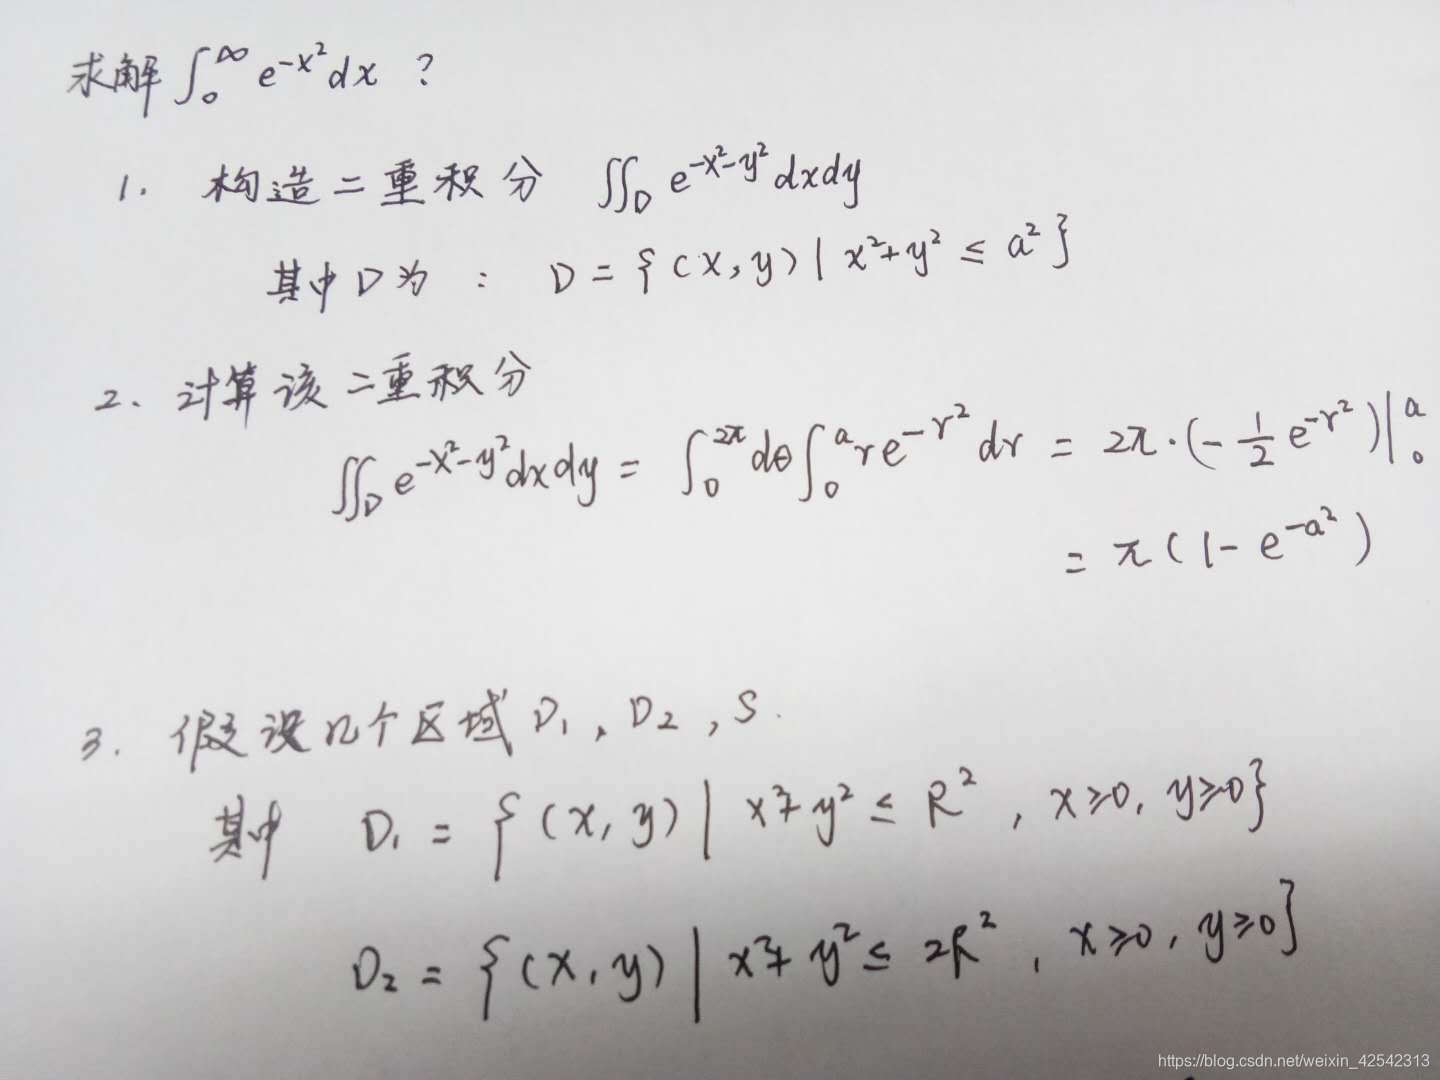 求解 ∫₀^∞ e^{-x²}dx ?
1. 构造二重积分 ∬_D e^{-x²-y²}dxdy
其中D为 : D = {(x,y) | x²+y² ≤ a²}
2. 计算该二重积分
∬_D e^{-x²-y²}dxdy = ∫₀^{2π} dθ ∫₀^a re^{-r²}dr = 2π·(-1/2 e^{-r²})|₀^a
= π(1-e^{-a²})
3. 假设几个区域 D₁, D₂, S.
其中 D₁ = {(x,y) | x²+y² ≤ R², x≥0, y≥0}
D₂ = {(x,y) | x²+y² ≤ 2R², x≥0, y≥0}
https://blog.csdn.net/weixin_42542313